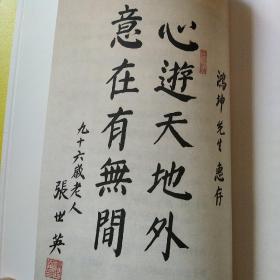 鸿坤先生惠存
心遊天地外
意在有無間
九十六歲老人
張世英